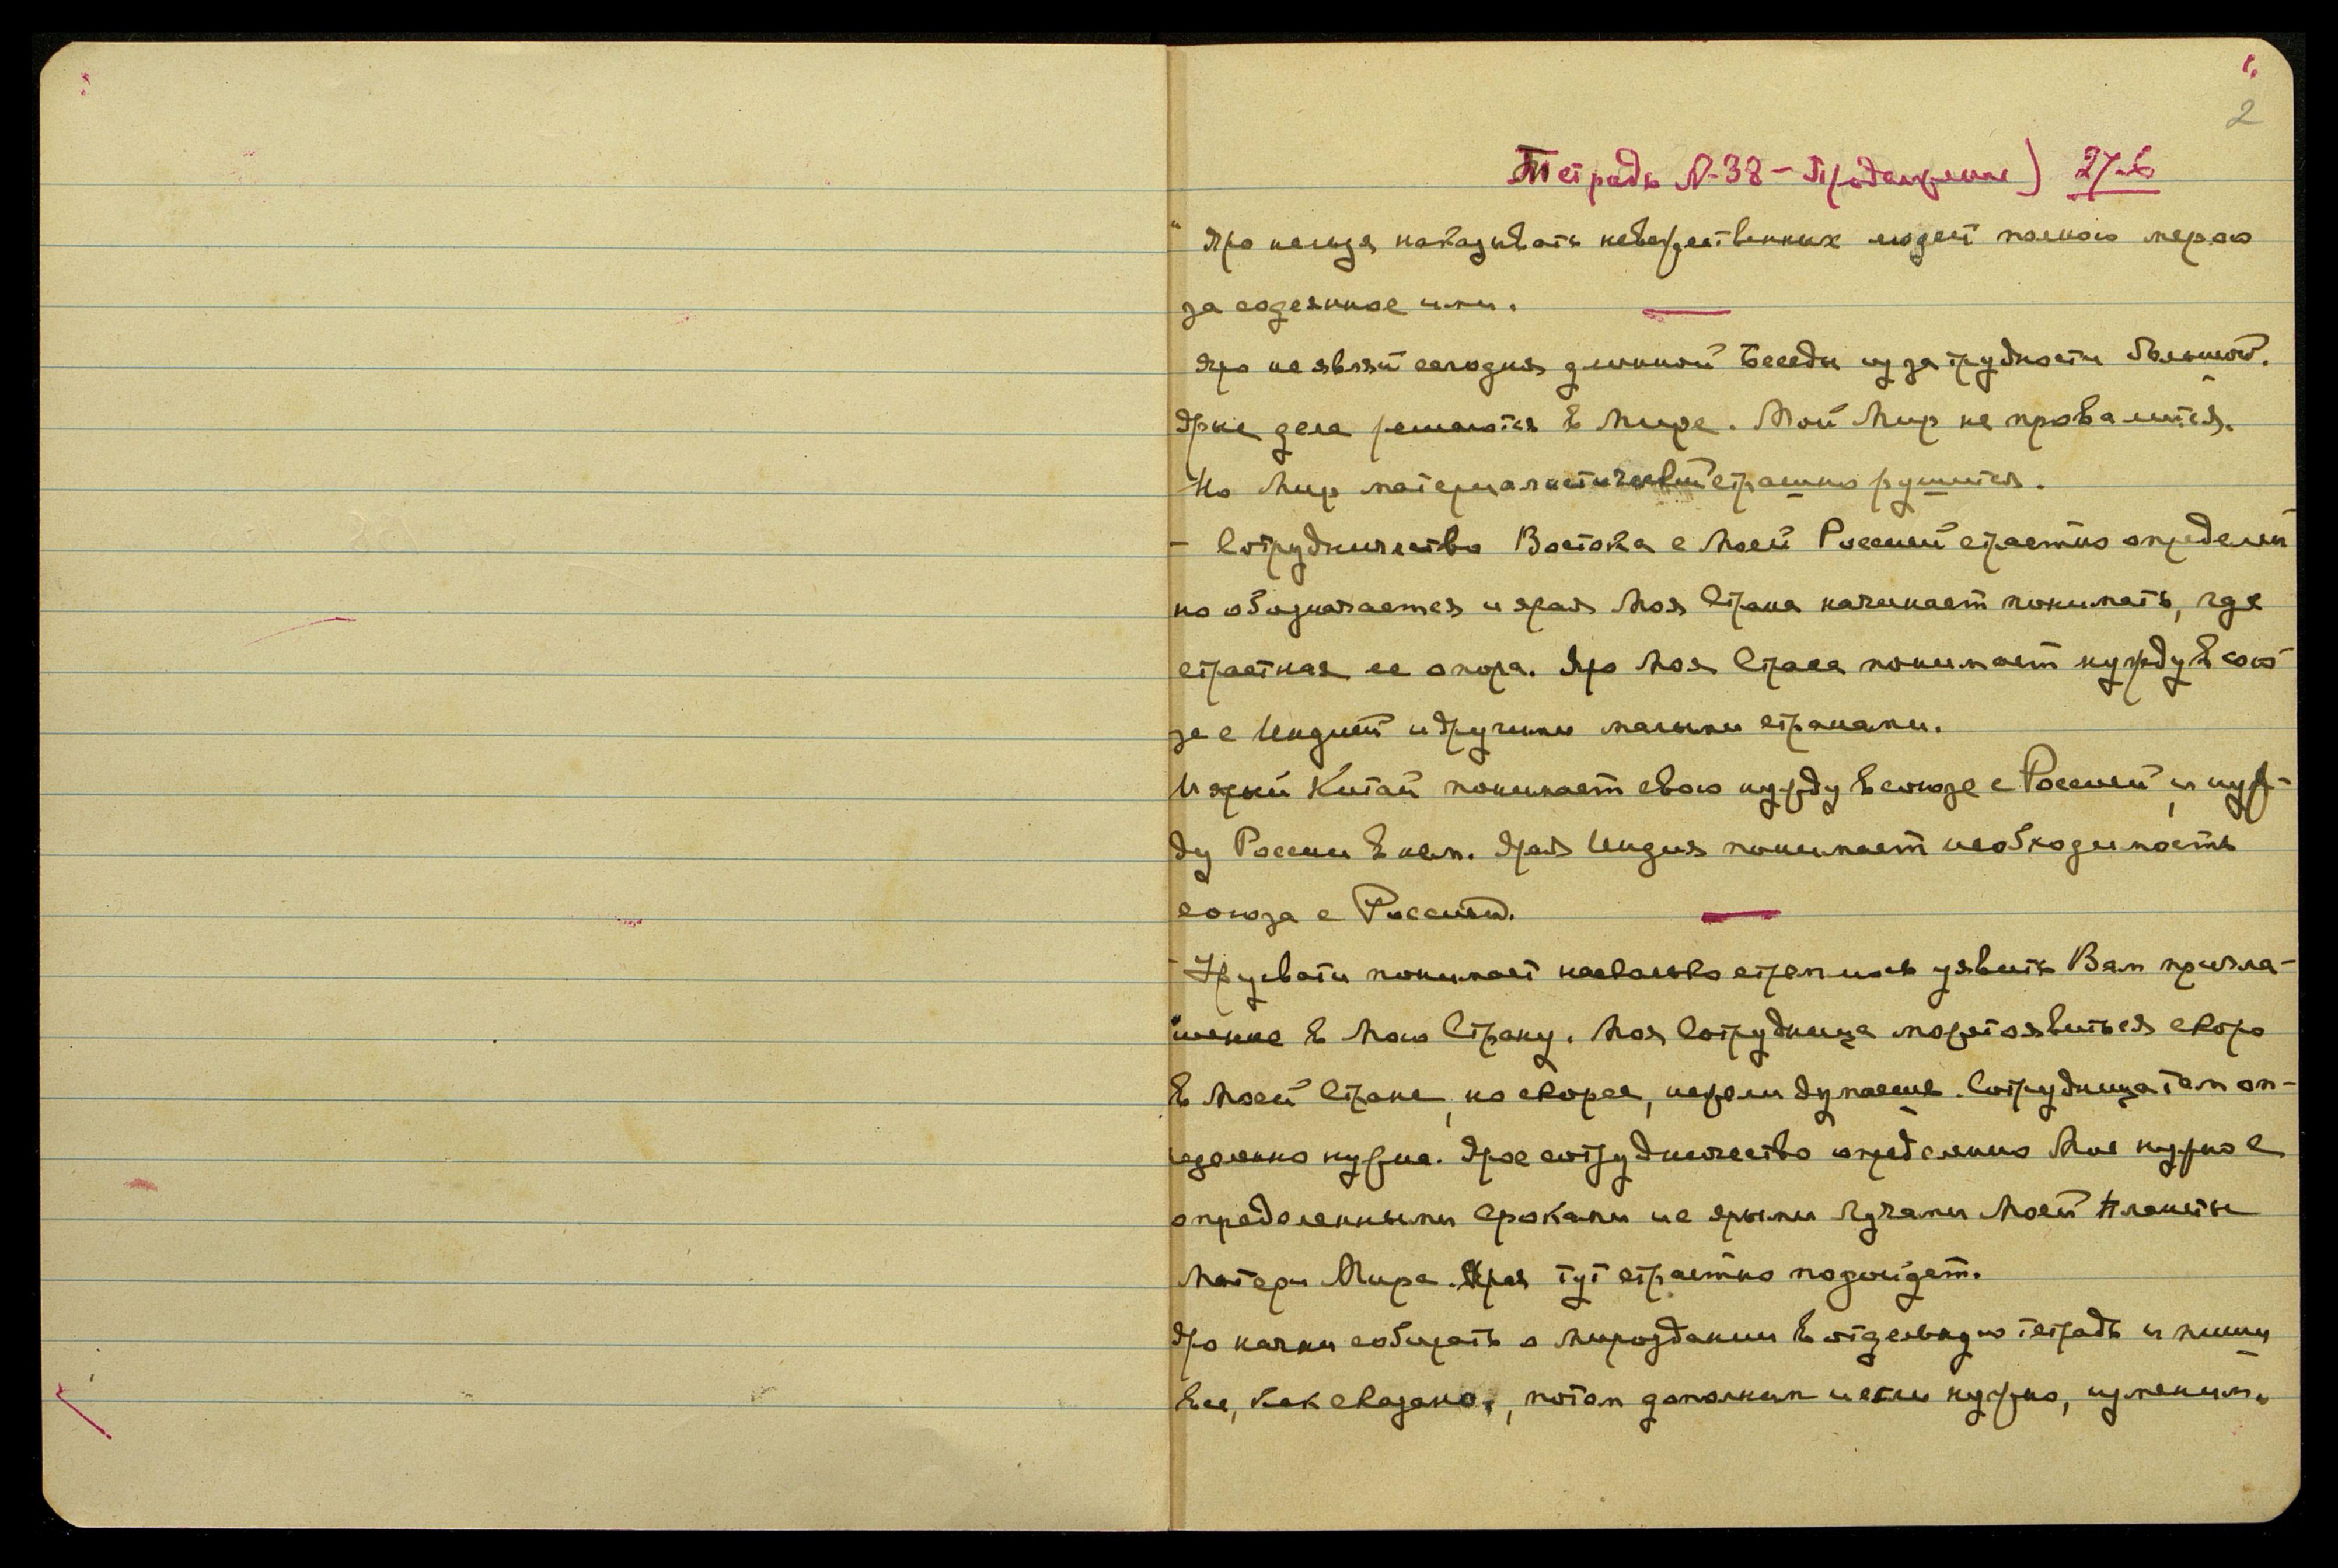 2
Тетрадь N-38 - Продолжение) 27-6
" Яро нельзя наказывать невежественных людей полною мерою
за содеянное ими.
Яро не являй сегодня длинной Беседы из за трудности большой.
Ярые дела решаются в Мире. Мой Мир не провалится.
Но Мир материалистический страшно рушится.
- Сотрудничество Востока с Моей Россией страстно определен
но обозначается и ярая Моя Страна начинает понимать, где
страстная ее опора. Яро Моя Страна понимает нужду в сою-
зе с Индией и другими малыми странами.
И ярый Китай понимает свою нужду в союзе с Россией, и нуж-
ду России в нем. Ярая Индия понимает необходимость
союза с Россией.
- Урусвати понимает насколько стремлюсь уявить Вам пригла-
шение в Мою Страну. Моя Сотрудница может оявиться скоро
в Моей Стране, но скорее, нежели думаешь. Сотрудница там оп-
ределенно нужна. Ярое сотрудничество определенно Мне нужно с
определенными сроками и с ярыми лучами Моей Планеты
Матери Мира. Ярая тут страстно подойдет.
Яро начни собирать о мироздании в отдельную тетрадь и пиши
все, как сказано, потом дополним и если нужно, изменим.